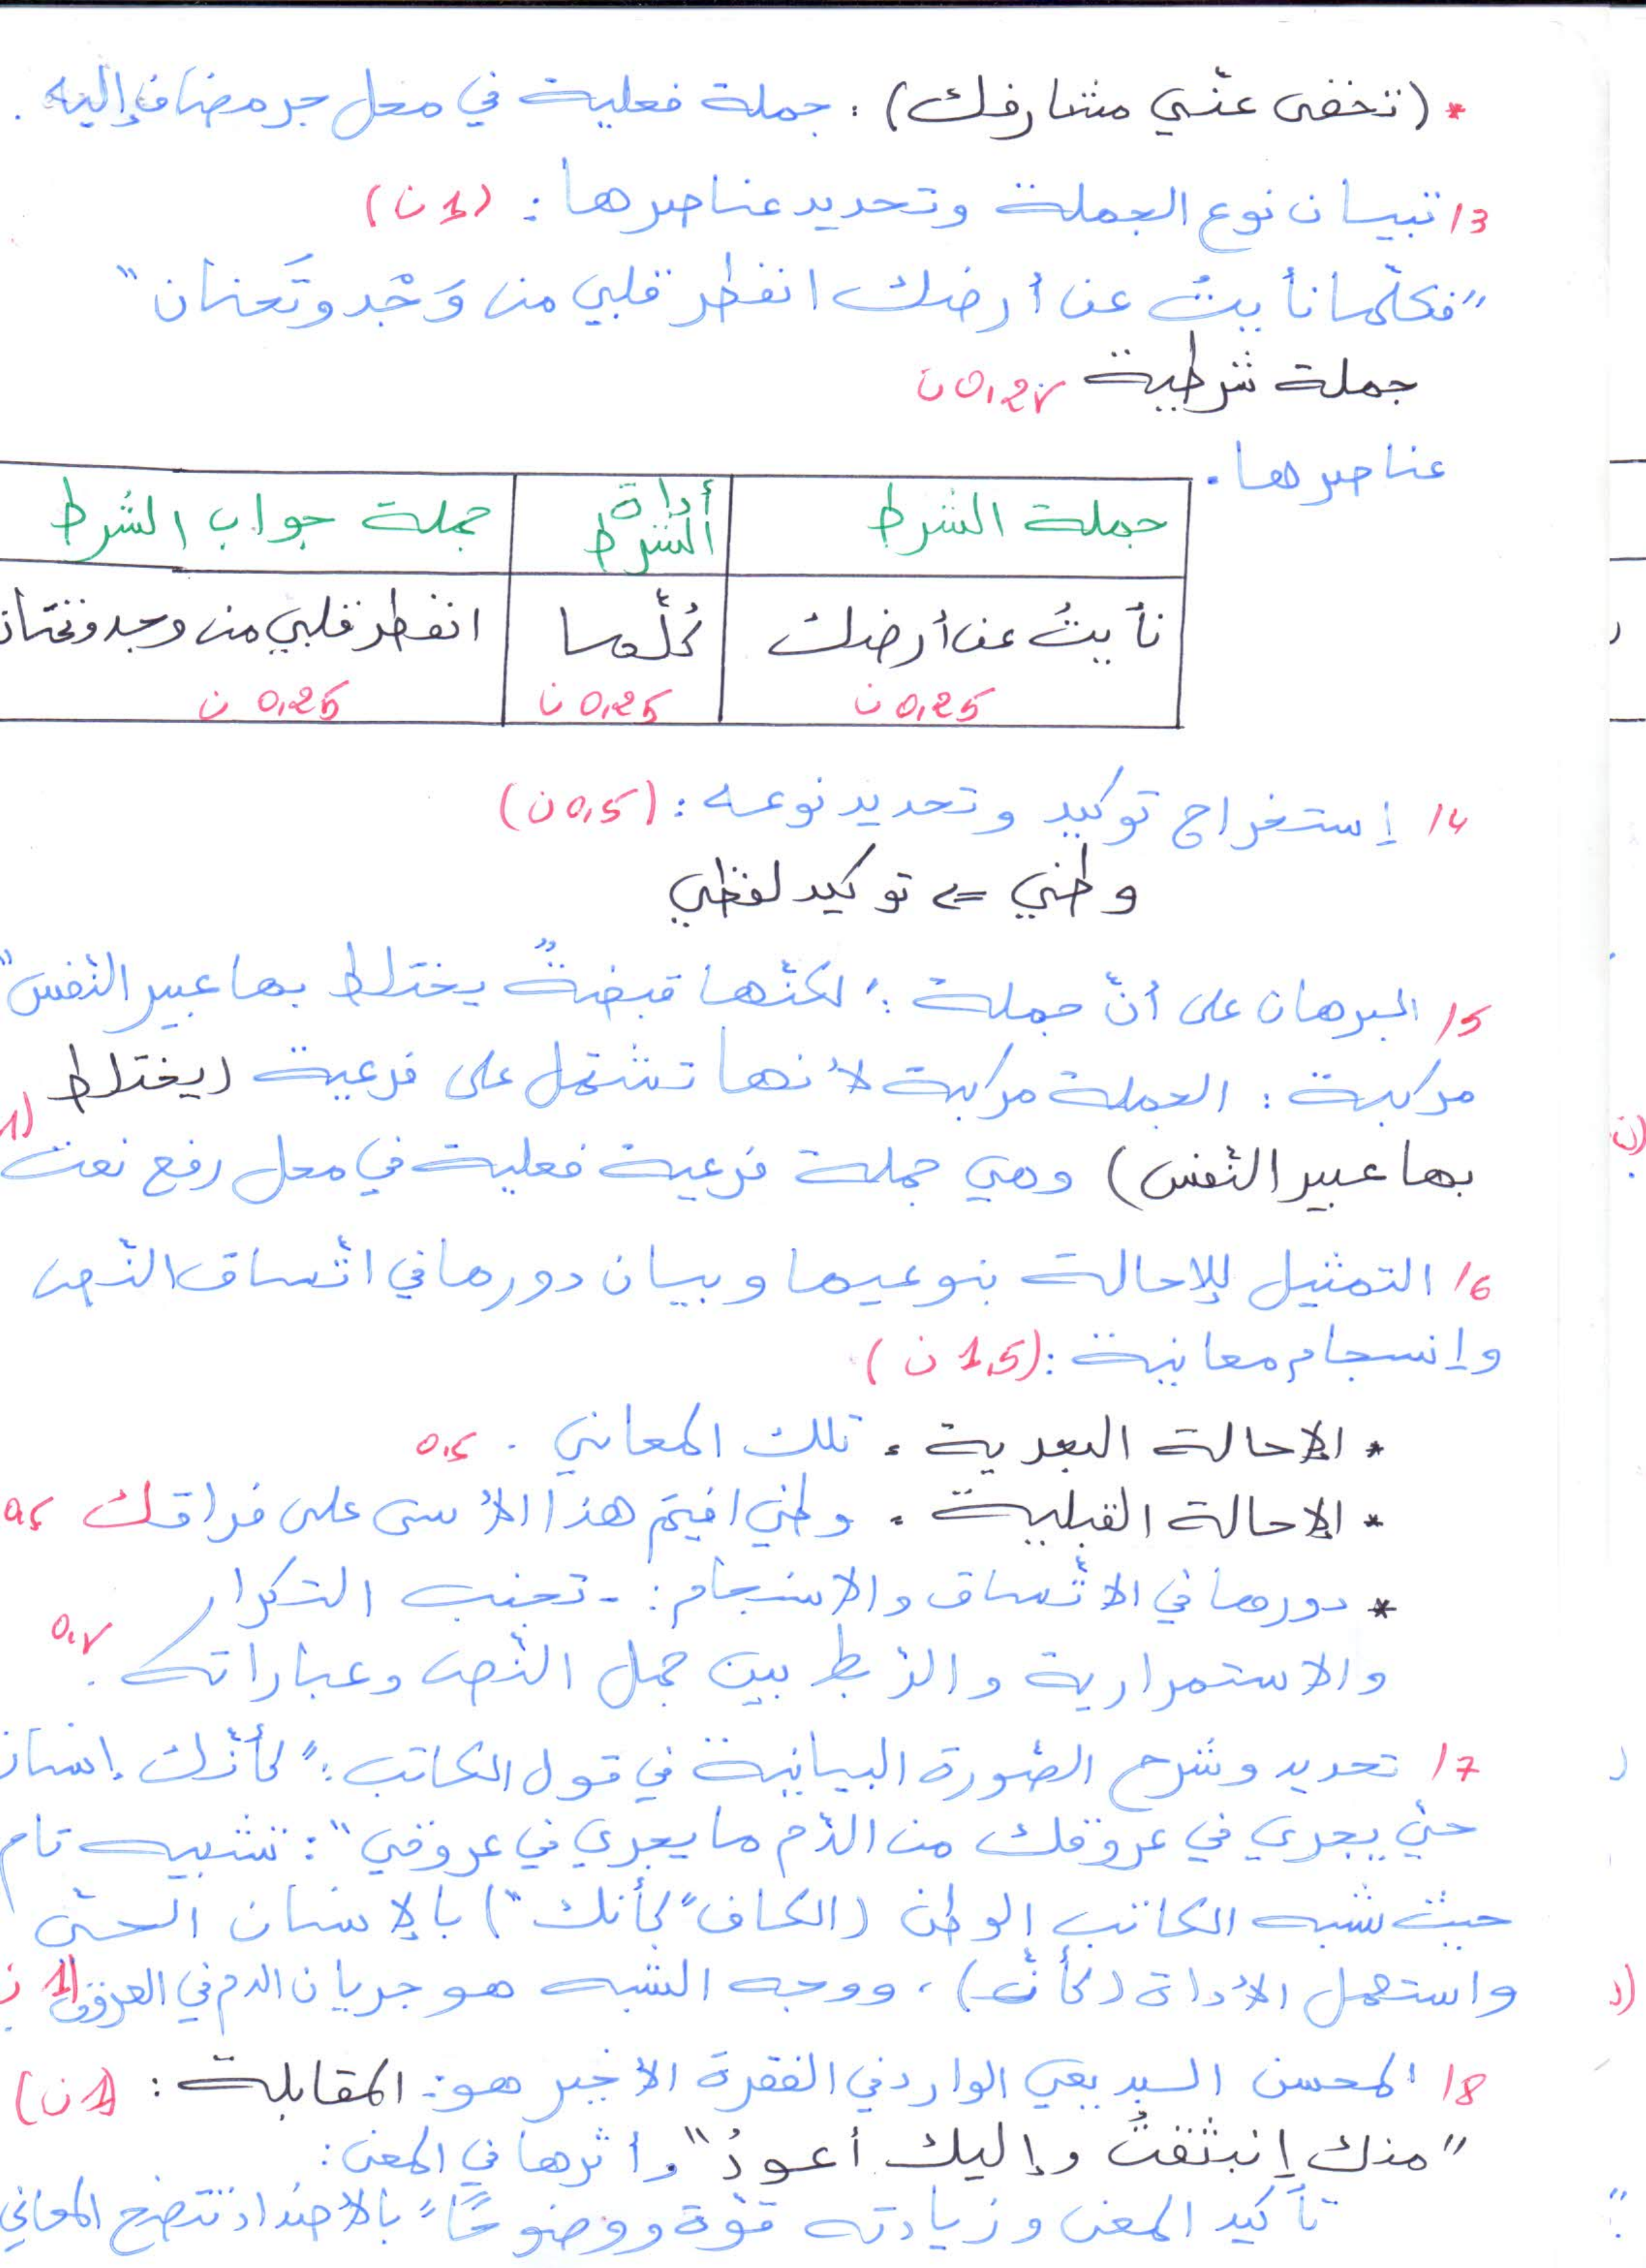 * (تخفى عنّي مشارفك) : جملة فعلية في محل جر مضاف إليه .
13/ تبيان نوع الجملة وتحديد عناصرها : (1ن)
"فكلّما نأيتُ عن أرضك انفطر قلبي من وَجْد وتَحنان"
جملة شرطية 0,25ن
عناصرها .
جملة الشرط | أداة الشرط | جملة جواب الشرط
نأيتُ عن أرضك | كُلّما | انفطر قلبي من وجد وتحنان
0,25 ن | 0,25 ن | 0,25 ن
14/ إستخراج توكيد وتحديد نوعه : (0,5ن)
وطني => توكيد لفظي
15/ البرهان على أنّ جملة : "لكنّها قبضةٌ يختلط بها عبير النّفس"
مركبة : الجملة مركبة لأنها تشتمل على فرعية (يختلط
بها عبير النّفس) وهي جملة فرعية فعلية في محل رفع نعت (1
16/ التمثيل للإحالة بنوعيها وبيان دورها في اتّساق النّص
وإنسجام معانية : (1,5 ن)
* الإحالة البعدية : تلك المعاني . 0,5
* الإحالة القبلية : وطني افيتم هذا الأسى على فراقك 0,5
* دورها في الاتّساق والانسجام : - تجنب التكرار
والاستمرارية والرّبط بين جمل النّص وعباراته .
17/ تحديد وشرح الصّورة البيانية في قول الكاتب : "كأنّك إنسان
حيّ يجري في عروقك من الدّم ما يجري في عروقي" : تشبيه تام
حيث شبه الكاتب الوطن (الكاف "كأنك") بالإنسان الحيّ
واستعمل الأداة (كأنّ) ، ووجه الشبه هو جريان الدم في العروق (1 ن
18/ المحسن البديعي الوارد في الفقرة الأخير هو : المقابلة : (1ن)
"منك إنبثقتُ وإليك أعودُ" وأثرها في المعنى :
تأكيد المعنى وزيادته قوّة ووضوحًا "بالأضداد تتضح المعاني